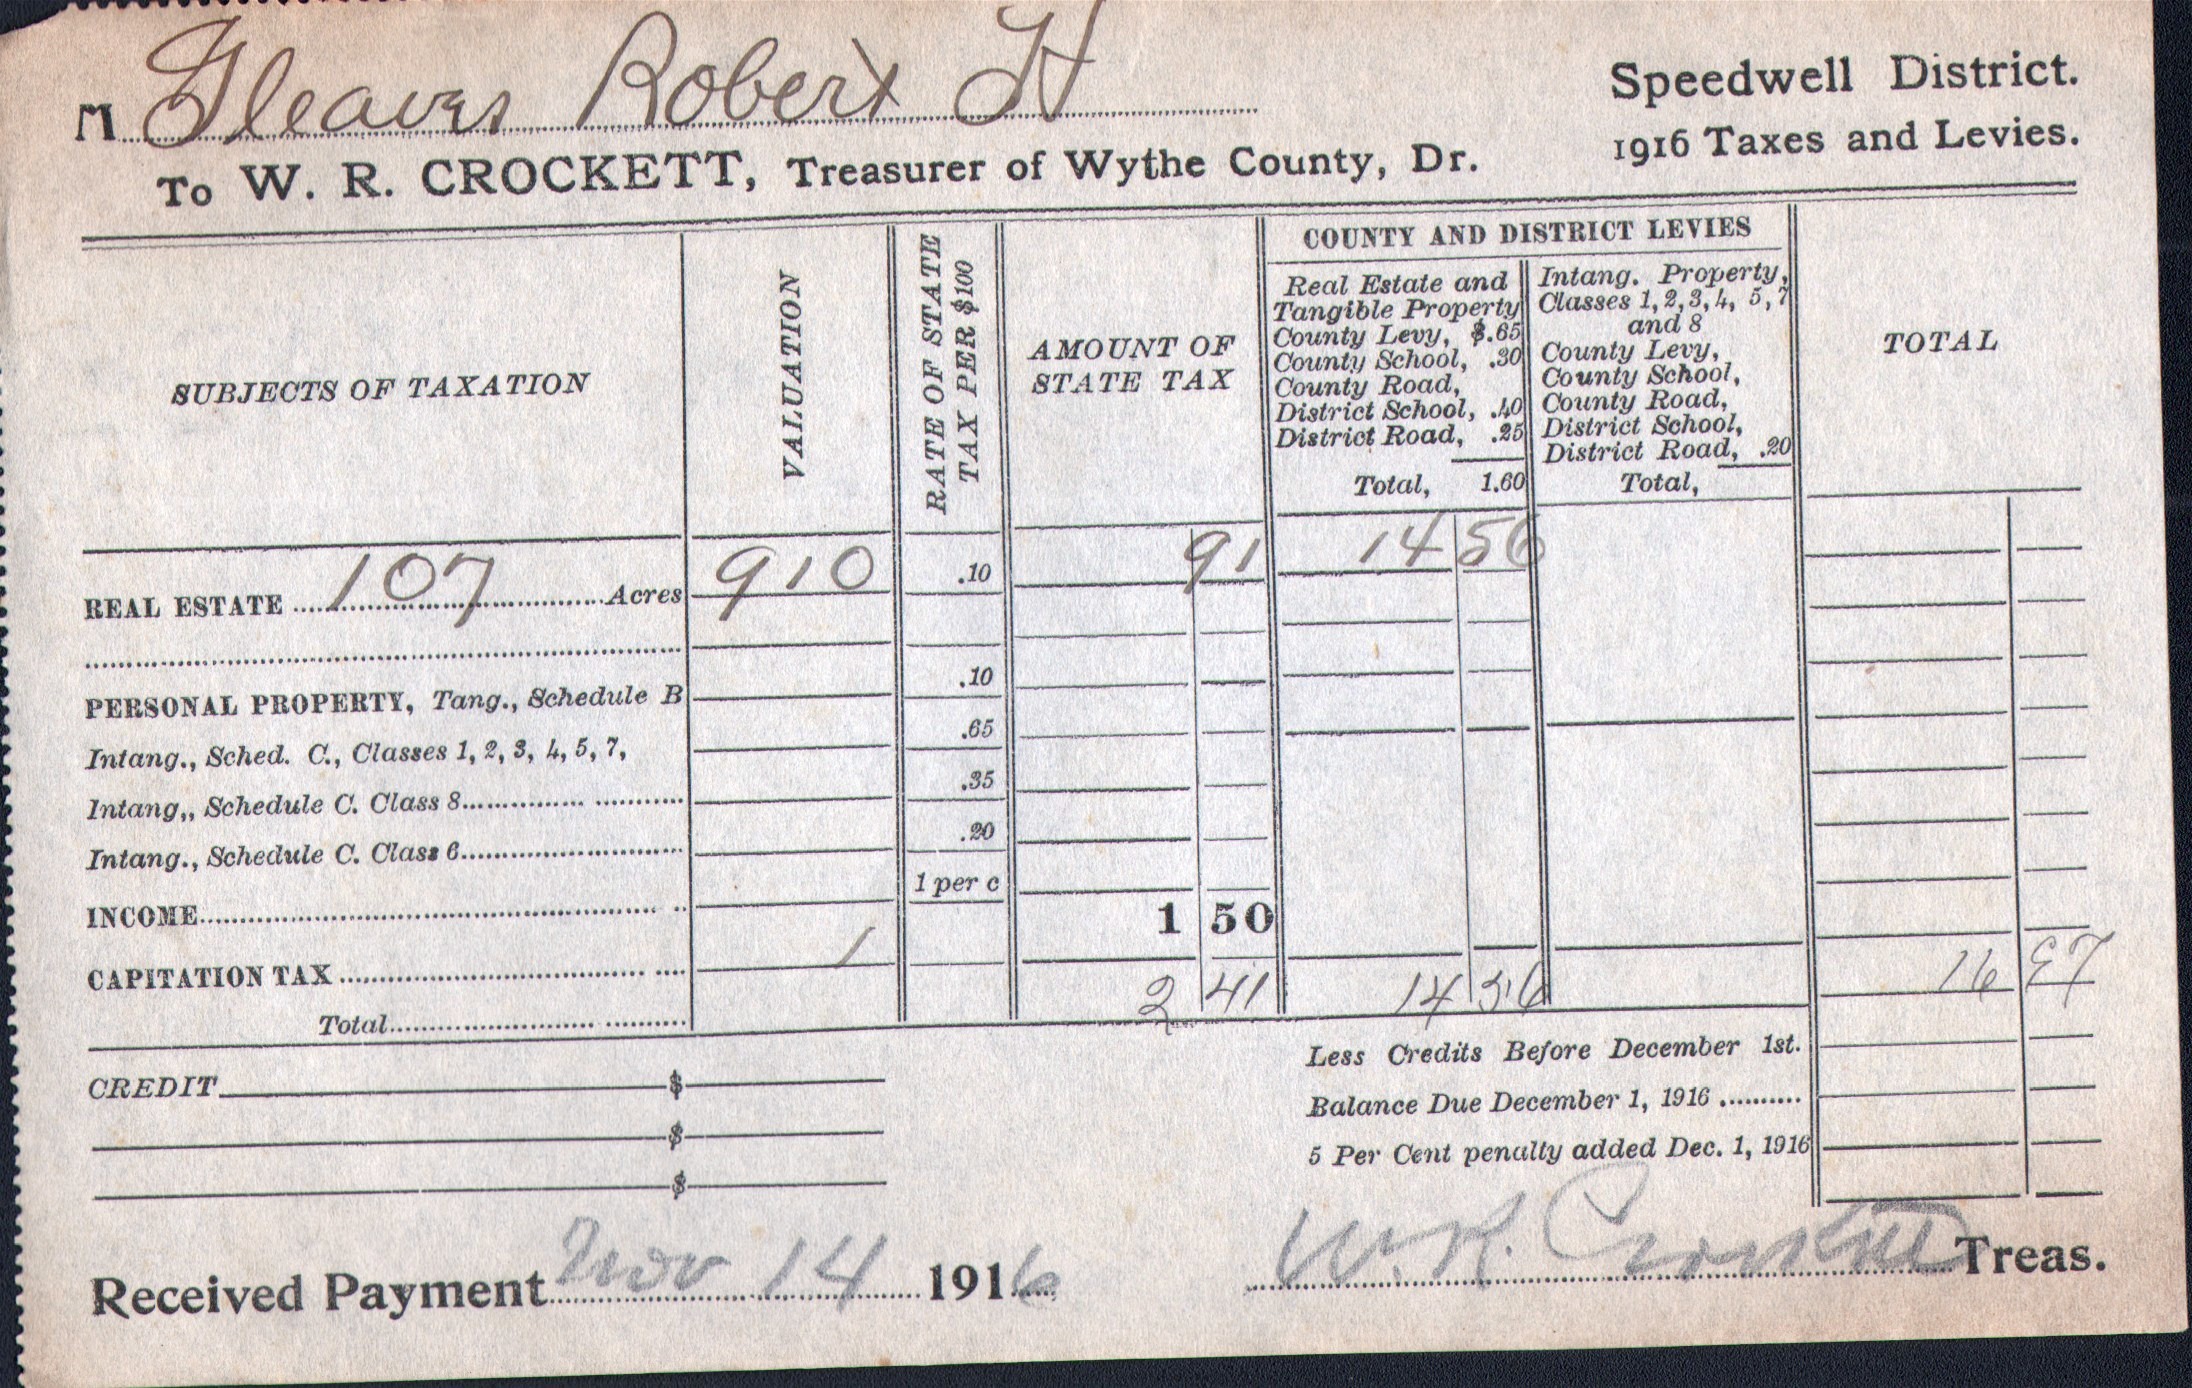 M Gleaves Robert H
Speedwell District.
1916 Taxes and Levies.
To W. R. CROCKETT, Treasurer of Wythe County, Dr.
SUBJECTS OF TAXATION
VALUATION
RATE OF STATE
TAX PER $100
AMOUNT OF
STATE TAX
COUNTY AND DISTRICT LEVIES
Real Estate and
Tangible Property
County Levy, $.65
County School, .30
County Road,
District School, .40
District Road, .25
Total, 1.60
Intang. Property,
Classes 1, 2, 3, 4, 5, 7
and 8
County Levy,
County School,
County Road,
District School,
District Road, .20
Total,
TOTAL
REAL ESTATE 107 Acres 910 .10 91 14 56
PERSONAL PROPERTY, Tang., Schedule B .10
Intang., Sched. C., Classes 1, 2, 3, 4, 5, 7, .65
Intang,, Schedule C. Class 8 .35
Intang., Schedule C. Class 6 .20
INCOME 1 per c
CAPITATION TAX 1 1 50
Total 2 41 14 56 16 97
Less Credits Before December 1st.
CREDIT $
Balance Due December 1, 1916
$
5 Per Cent penalty added Dec. 1, 1916
$
Received Payment Nov 14 1916
W. R. Crockett Treas.